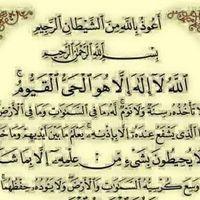 أَعُوذُ بِٱللَّهِ مِنَ ٱلشَّيْطَانِ ٱلرَّجِيمِ
بِسْمِ ٱللَّهِ ٱلرَّحْمَٰنِ ٱلرَّحِيمِ
ٱللَّهُ لَآ إِلَٰهَ إِلَّا هُوَ ٱلْحَىُّ ٱلْقَيُّومُ
لَا تَأْخُذُهُۥ سِنَةٌ وَلَا نَوْمٌ لَّهُۥ مَا فِى ٱلسَّمَٰوَٰتِ وَمَا فِى ٱلْأَرْضِ
ذَا ٱلَّذِى يَشْفَعُ عِندَهُۥٓ إِلَّا بِإِذْنِهِۦ يَعْلَمُ مَا بَيْنَ أَيْدِيهِمْ وَمَا خَ
لَا يُحِيطُونَ بِشَىْءٍ مِّنْ عِلْمِهِۦٓ إِلَّا بِمَا شَآ
وَسِعَ كُرْسِيُّهُ ٱلسَّمَٰوَٰتِ وَٱلْأَرْضَ وَلَا يَـُٔودُهُۥ حِفْظُهُمَا